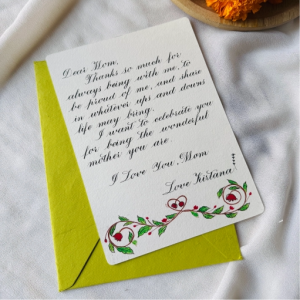 Dear Mom,
Thanks so much for
always being with me, to
be proud of me, and share
in whatever ups and downs
life may bring.
I want to celebrate you
for being the wonderful
mother you are.
I Love You, Mom
Love Kirtana